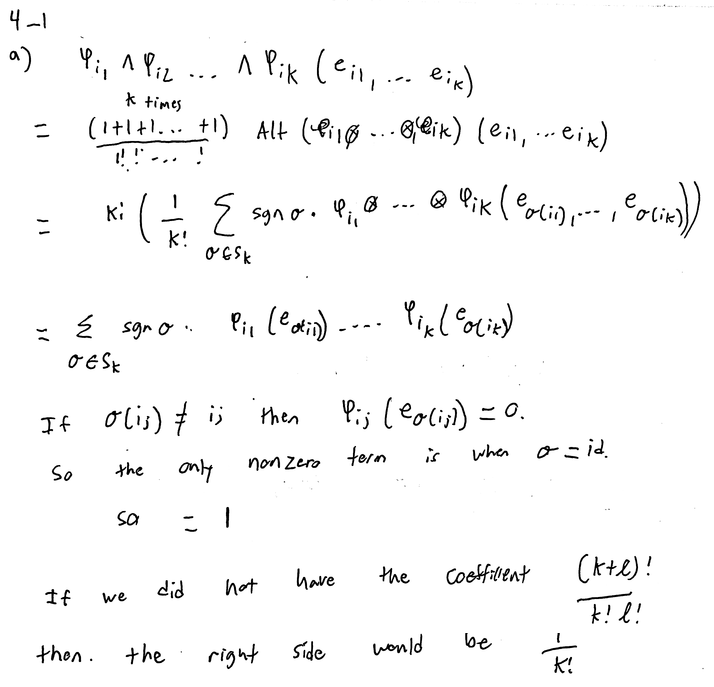 4-1
a) φ_{i1} ∧ φ_{i2} ... ∧ φ_{ik} (e_{i1}, ... e_{ik})
k times
= (1+1+1... +1) / 1!1! ... ! Alt (φ_{i1}⊗ ... ⊗φ_{ik}) (e_{i1}, ... e_{ik})
= k! ( 1/k! Σ_{σ∈S_k} sgn σ · φ_{i1} ⊗ ... ⊗ φ_{ik} (e_{σ(i1)}, ..., e_{σ(ik)}))
= Σ_{σ∈S_k} sgn σ · φ_{i1} (e_{σ(i1)}) .... φ_{ik} (e_{σ(ik)})
If σ(ij) ≠ ij then φ_{ij} (e_{σ(ij)}) = 0.
So the only nonzero term is when σ = id.
so = 1
If we did not have the coefficient (k+l)! / k! l!
then. the right side would be 1/k!